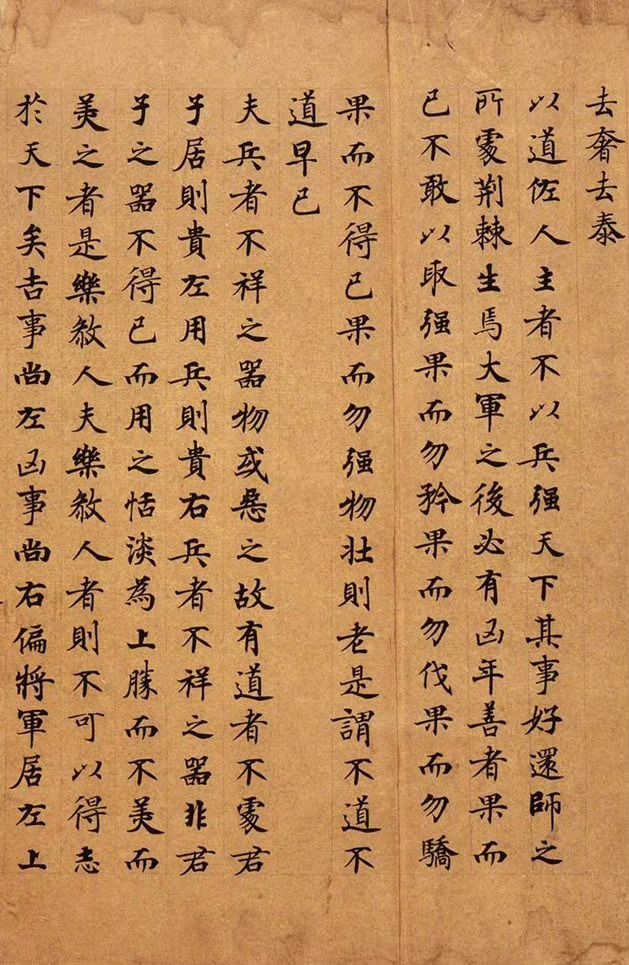 去奢去泰
以道佐人主者不以兵强天下其事好還師之
所處荆棘生焉大軍之後必有凶年善者果而
已不敢以取强果而勿矜果而勿伐果而勿驕
果而不得已果而勿强物壯則老是謂不道不
道早已
夫兵者不祥之器物或惡之故有道者不處君
子居則貴左用兵則貴右兵者不祥之器非君
子之器不得已而用之恬淡為上勝而不美而
美之者是樂殺人夫樂殺人者則不可以得志
於天下矣吉事尚左凶事尚右偏將軍居左上